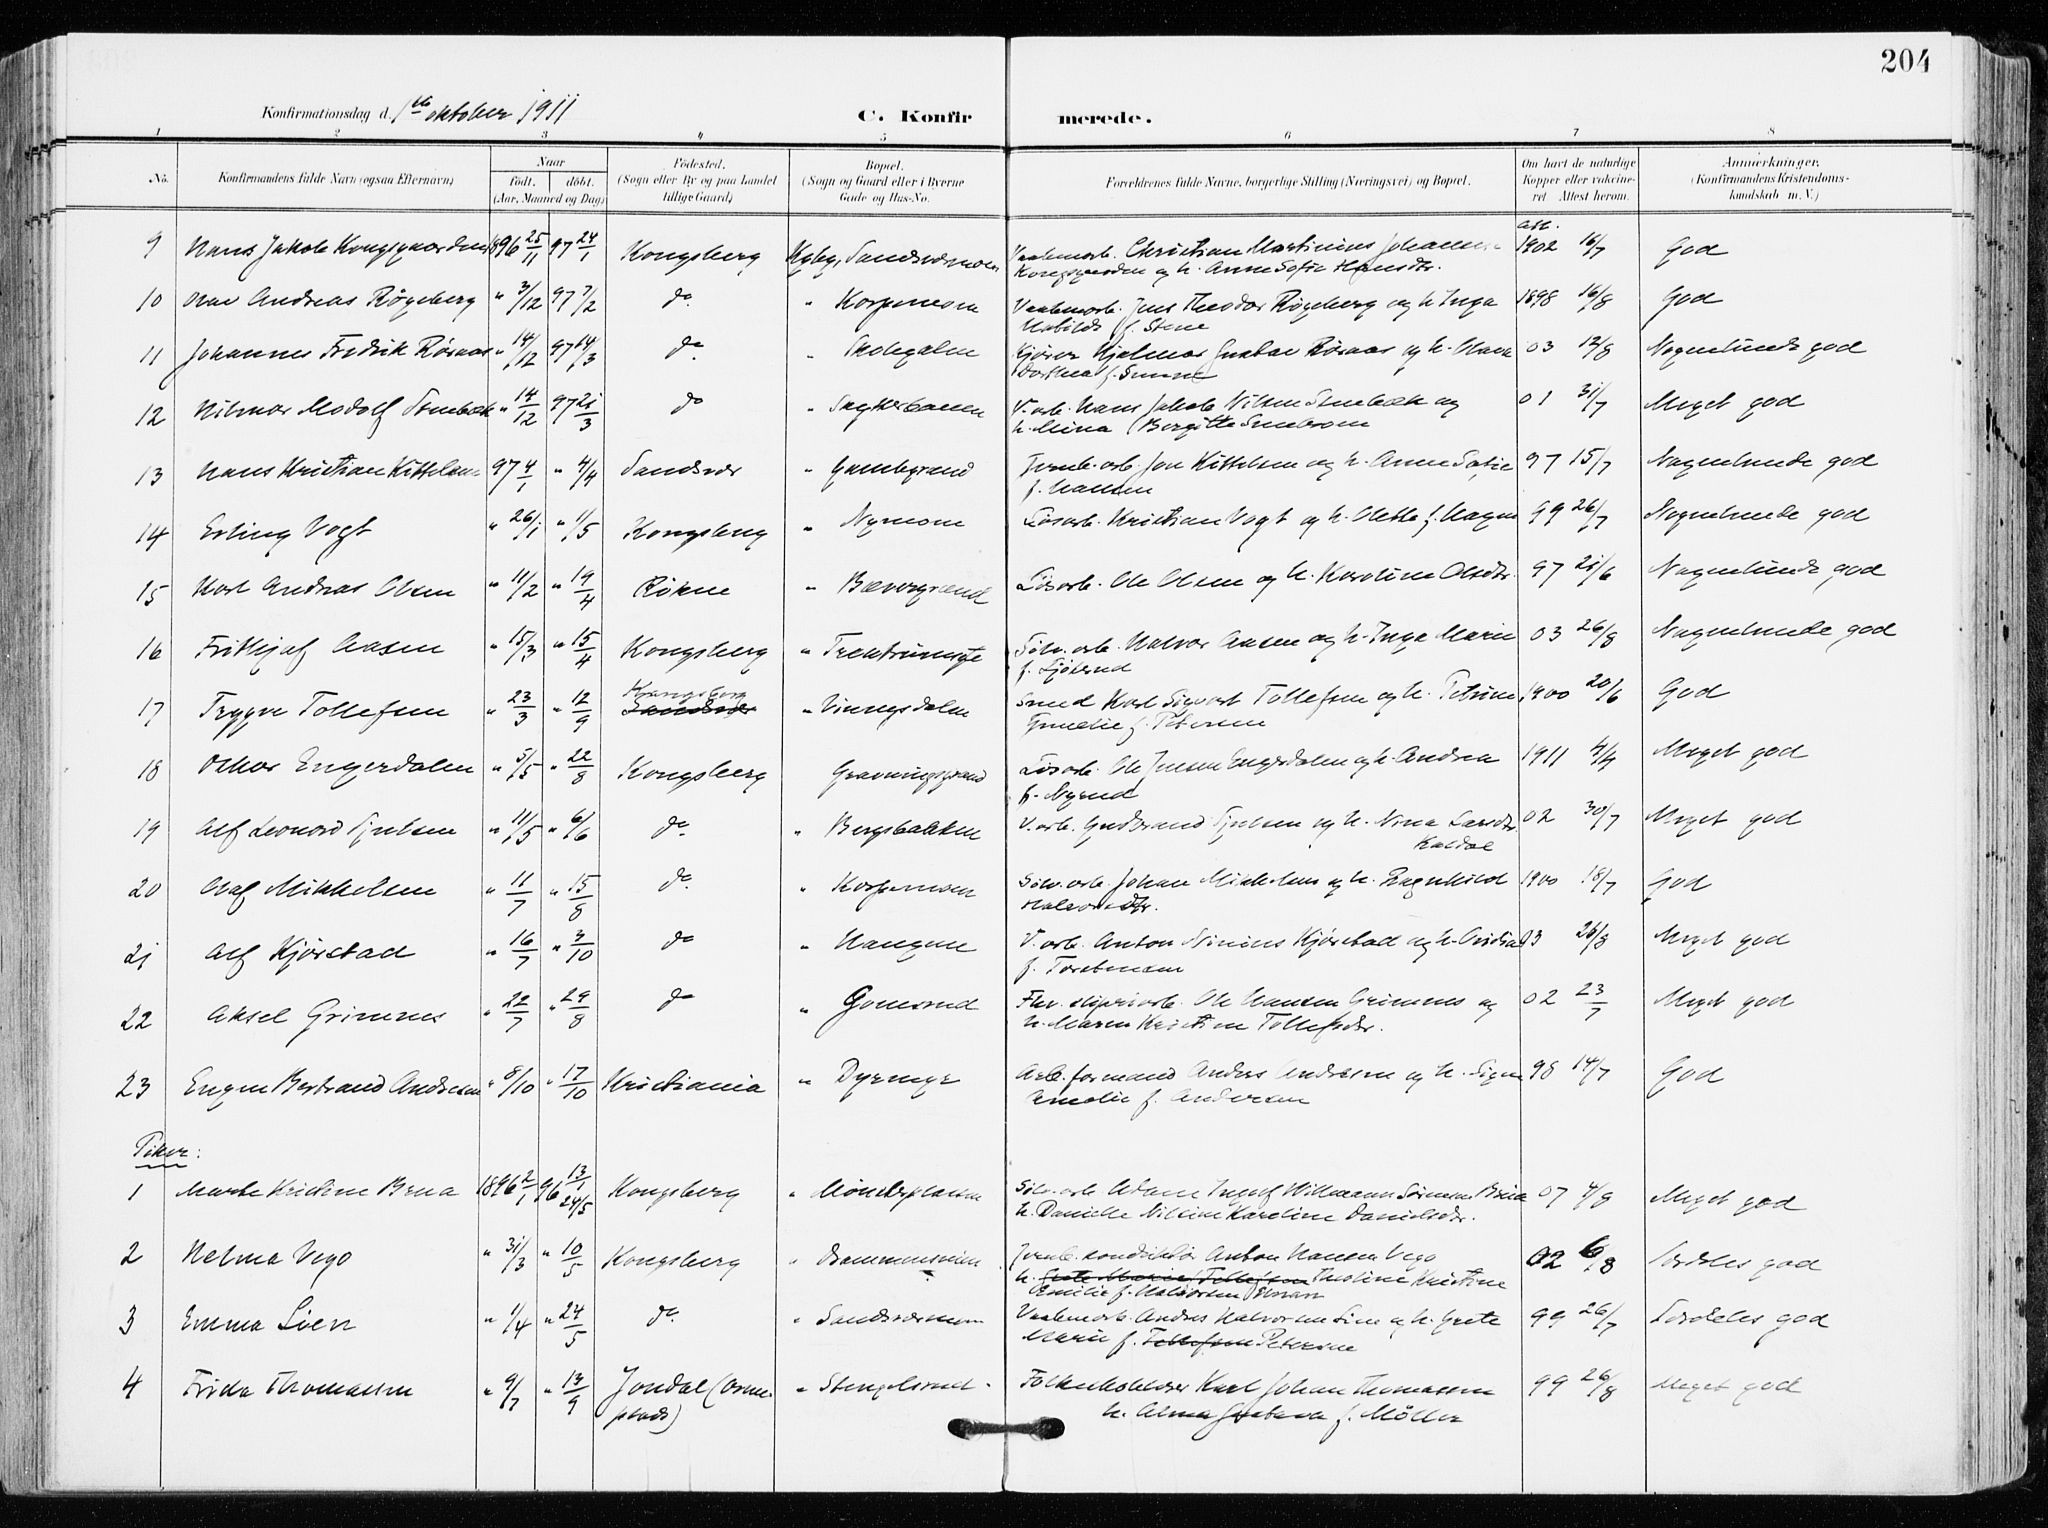 204
Konfirmationsdag d. 1ste oktober 1911
C. Konfirmerede.
1 2 3 4 5 6 7 8
No. Konfirmandens fulde Navn (ogsaa Efternavn) Naar født. døbt. (Aar, Maaned og Dag) Fødested. (Sogn eller By og paa Landet tillige Gaard) Bopæl. (Sogn og Gaard eller i Byerne Gade og Hus-No. Forældrenes fulde Navne, borgerlige Stilling (Næringsvei) og Bopæl. Om havt de naturlige Kopper eller vakcineret. Attest herom. Anmærkninger. (Konfirmandens Kristendomskundskab m.V.)
att.
9 Hans Jakob Kongsgaarden 1896 25/11 97 24/1 Kongsberg Kgbg. Sandsværmoen Valsemarb. Christian Martinius Johannes 1902 16/7 God
Kongsgaarden og h. Anne Sofie Hansdtr.
10 Olav Andreas Røgeberg " 3/12 97 7/2 do " Korpemoen Jens Theodor Røgeberg og h. Inga 1898 16/8 God
Mathilde f. Stene
11 Johannes Fredrik Røraas " 14/12 97 14/3 do " Skolegaten Kjører Hjalmar Gustav Røraas og h. Olava 03 12/8 Nogenlunde god
Dorthea f.
12 Hilmar Modolf Stenbæk " 14/12 97 21/3 do " V. arb. Hans Jakob Nilsen Stenbæk og 01 31/7 Meget god
h. Mina Bergitte
13 Hans Kristian Kittelsen 97 4/1 " 4/4 Sandsvær " Gambegrand Jernb. arb. Jon Kittelsen og h. Anne Sofie 97 15/7 Nogenlunde god
f. Hansen
14 Erling Vogt " 26/1 " 1/5 Kongsberg " Nymoen Løsarb. Kristian Vogt og h. Olette f. Hagen 99 26/7 Nogenlunde god
15 Karl Andreas Olsen " 11/2 " 19/4 Røken " Bævergrænd Løsarb. Ole Olsen og h. Karoline Olsdtr. 97 21/6 Nogenlunde god
16 Frithjof Aasen " 15/3 " 15/4 Kongsberg " Sølv. arb. Halvor Aasen og h. Inga Marie 03 26/8 Nogenlunde god
17 Trygve Tollefsen " 23/3 " 12/9 Kongsberg Sandsvær " Vinngsdalen Smed Karl Sigvart Tollefsen og h. Petrine 1900 20/6 God
f. Petersen
18 Oskar Engerdalen " 5/5 " 22/8 Kongsberg Løsarb. Ole Jensen Engerdalen og h. Andrea 1911 4/4 Meget god
f. Nyrud
19 Alf Leonard Tjulsen " 11/5 " 6/6 do " Bergsbakken V. arb. Gudbrand Tjulsen og h. Nina Larsdtr. 02 30/7 Meget god
Kaldal
20 Olaf Mikkelsen " 11/7 " 15/8 do " Korpemoen Sølv. arb. Johan Mikkelsen og h. Ragnhild 1900 18/7 God
Halvorsdtr.
21 Alf Kjørstad " 16/7 " 3/10 do " Haugene V. arb. Anton Kjørstad og h. 03 26/8 Meget god
f. Torstensen
22 Aksel Grimnes " 22/7 " 29/8 do " Gomsrud Fhv. sliperiarb. Ole Hansen Grimnes og 02 23/7 Meget god
h. Maren Kristine Tollefsdtr.
23 Eugen Bertrand Andresen " 8/10 " 17/10 Kristiania " Dyrmyr Arb. formand Anders Andresen og h. Signe 98 14/7 God
Amalie f. Andersen
Piker:
1 Marte Kristine Brua 1896 2/1 96 13/1 24/5 Kongsberg " Sølv. arb. Adam Ingolf Willmann Sørensen Brua 07 4/8 Meget god
h. Danielle Nilsine Kareline Danielsdtr.
2 Helma Vego " 31/3 " 10/5 Kongsberg " Drammensveien Jernb. konduktør Anton Hansen Vego 02 6/8 Særdeles god
h. Grete Marie Tollefsen Tholine Kristine
Amilie f. Halvorsen
3 Emma Lien " 1/4 " 24/5 do " Sandsværmoen Valsemarb. Anders Halvorsen Lien og h. Grete 99 26/7 Særdeles god
Marie f. Tollefsen Petersen
4 Frida Thomassen " 9/7 " 13/9 Jondal (Osmeplads) " Stengelsrud Folkeskolelærer Karl Johan Thomassen 99 26/8 Meget god
h. Alma Gustava f. Møller